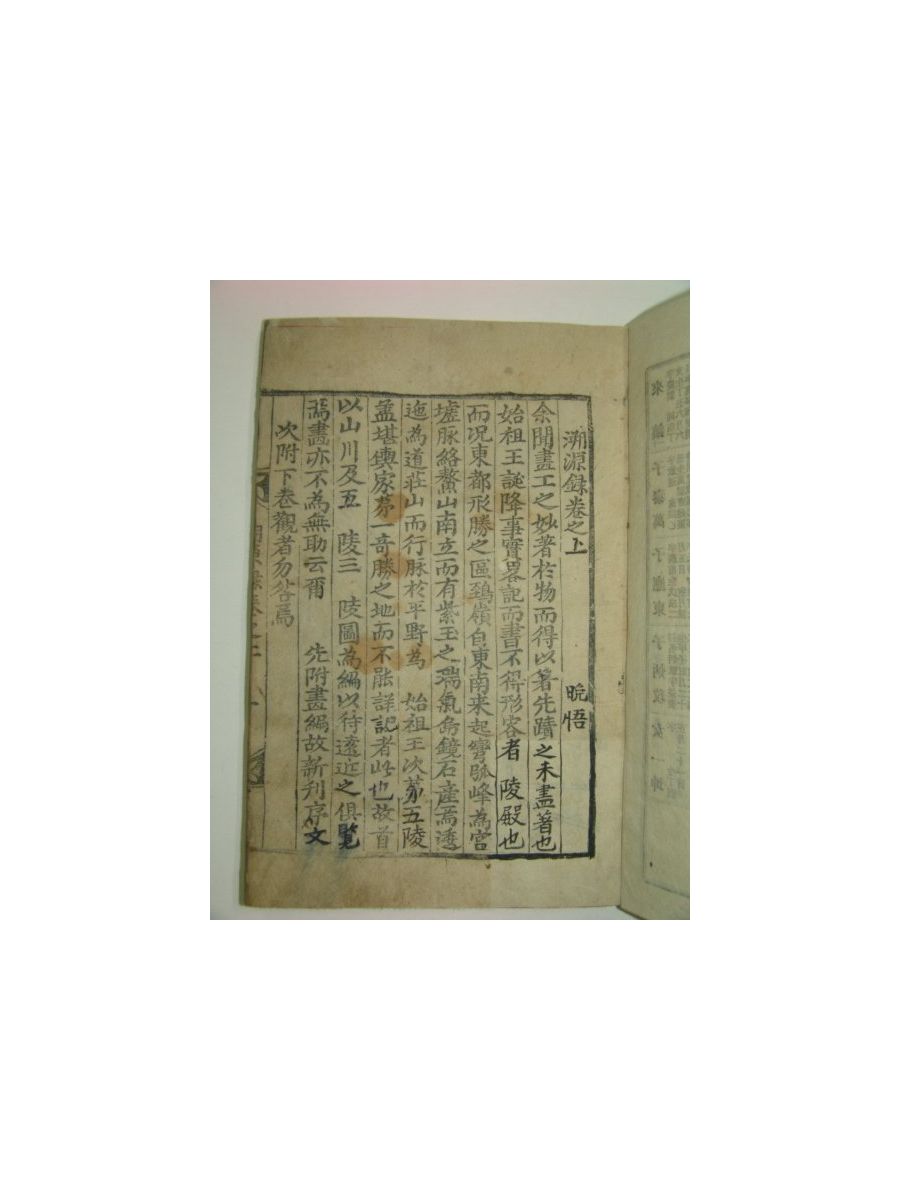 溯源録卷之上 晥悟
余聞畫工之妙著於物而得以著先蹟之未盡著也
始祖王誕降事實畧記而書不得形容者 陵殿也
而况東都形勝之區鵄嶺自東南来起 峰為宮
墟脉絡鰲山南立而有紫玉之瑞氣島鏡石産焉透
迤為道莊山而行脉於平野為 始祖王次苐五陵
盖堪輿家苐一奇勝之地而不能詳記者此也故首
以山川及五 陵三 陵圖為編以待遠近之俱覧
焉畫亦不為無助云爾 先附畫編故新刊序文
次附下卷觀者勿咎焉
來
子
萬
子
東
子
女
一
坤